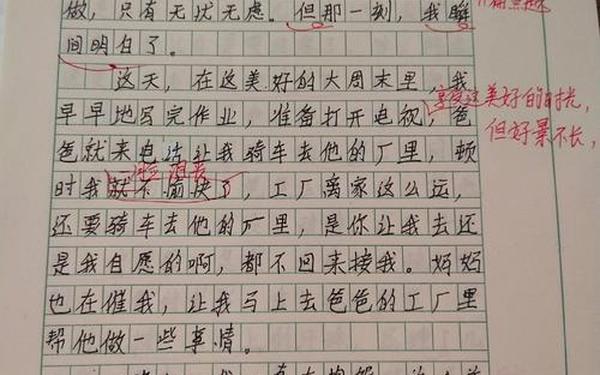 做，只有无忧无虑。但那一刻，我瞬
间明白了。
这天，在这美好的大周末里，我
早早地写完作业，准备打开电视，爸
享受这美好的时光，
但好景不长，
爸就来电话让我骑车去他的厂里，顿
时我就不愉快了，工厂离家这么远，
还要骑车去他的厂里，是你让我去还
是我自愿的啊，都不回来接我。妈妈
也在催我，让我马上去爸爸的工厂里
帮他做一些事情。